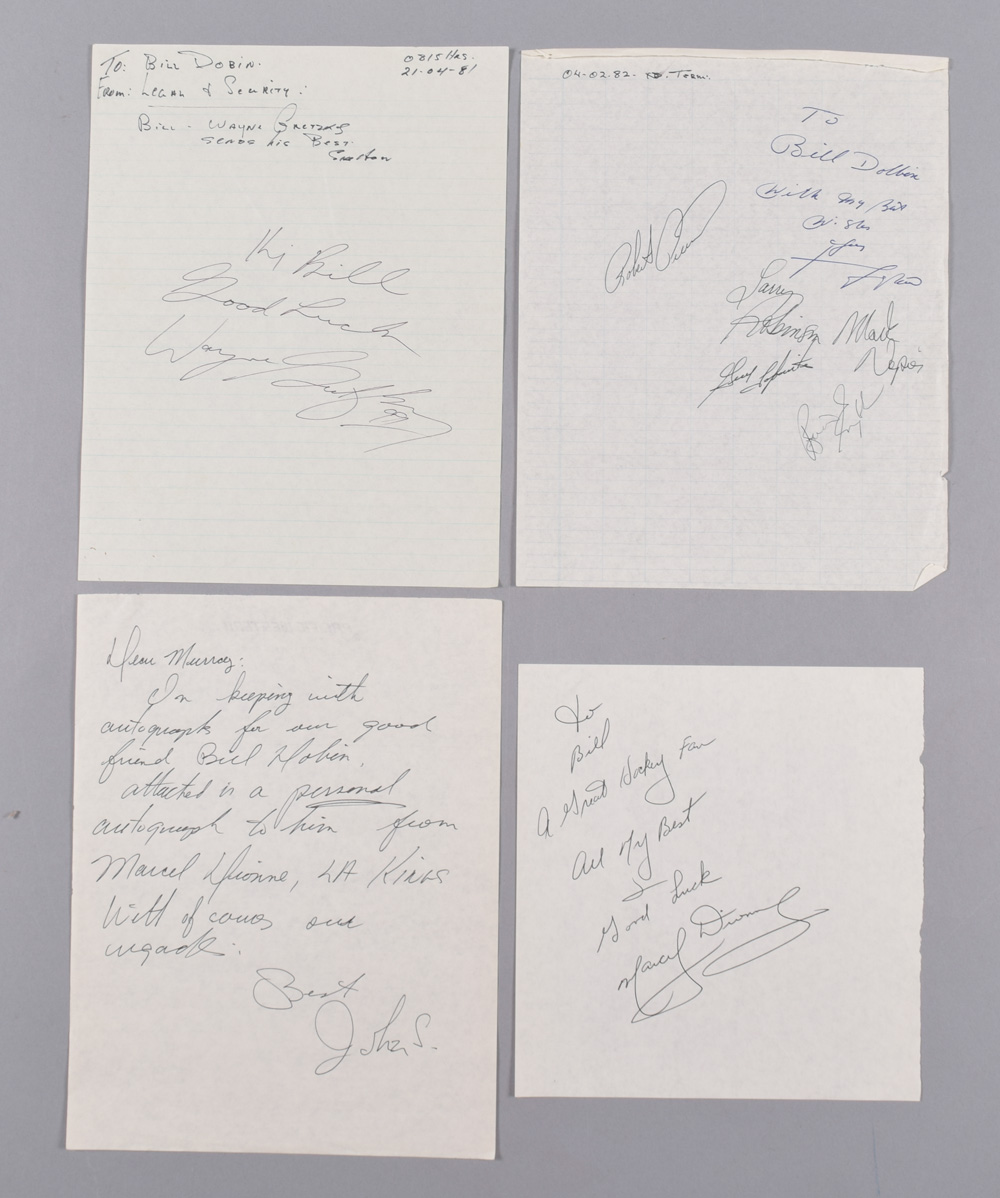 To: Bill Dobin.
0815 Hrs.
21-04-81
From: Legal & Security:
Bill - Wayne Gretzky
sends his Best.
Hi Bill
Good Luck
Wayne Gretzky
99
04-02-82
To
Bill Dobbin
With my Best
Wishes
Larry
Robinson
Mark
Napier
Guy Lapointe
Dear Murray:
In keeping with
autographs for our good
friend Bill Dobin,
attached is a personal
autograph to him from
Marcel Dionne, LA Kings
With of course our
regards.
Best
John S.
To
Bill
A Great Hockey Fan
All My Best
&
Good Luck
Marcel Dionne